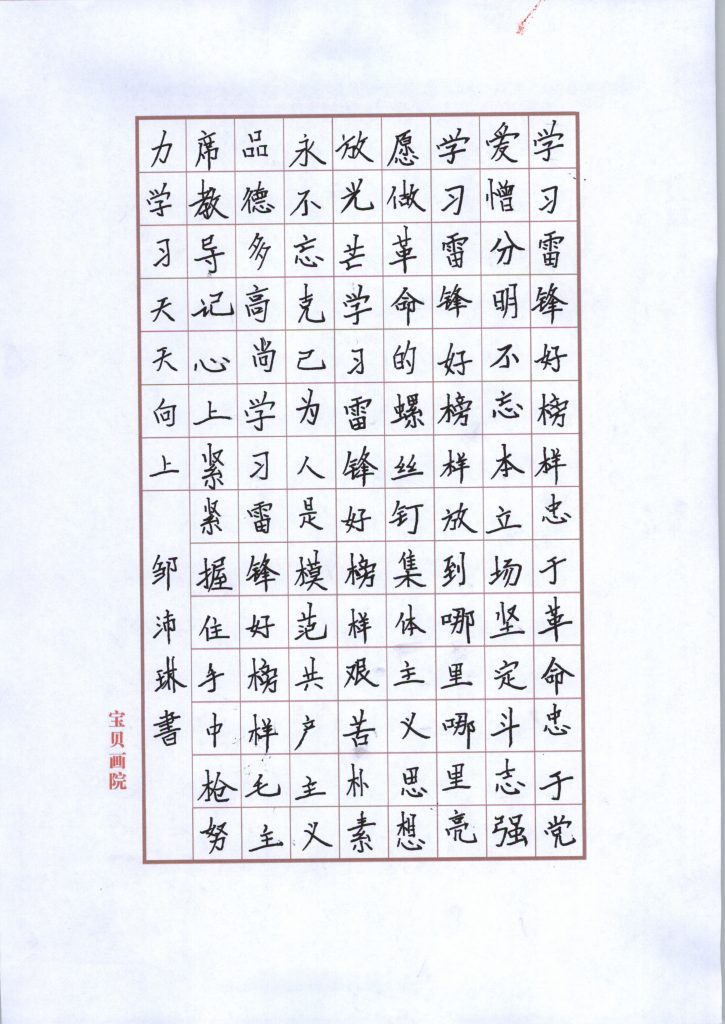 学习雷锋好榜样忠于革命忠于党
爱憎分明不忘本立场坚定斗志强
学习雷锋好榜样放到哪里哪里亮
愿做革命的螺丝钉集体主义思想
放光芒学习雷锋好榜样艰苦朴素
永不忘克己为人是模范共产主义
品德多高尚学习雷锋好榜样毛主
席教导记心上紧紧握住手中枪努
力学习天天向上
邹沛琳書
宝贝画院